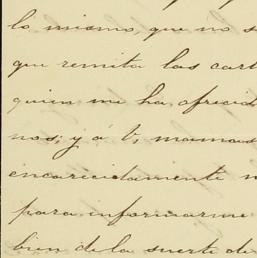 lo mismo, que no s
que remita las cart
quien me ha ofrecid
nos; y á ti, mamas
encarecidamente n
para informarme
bien de la suerte de